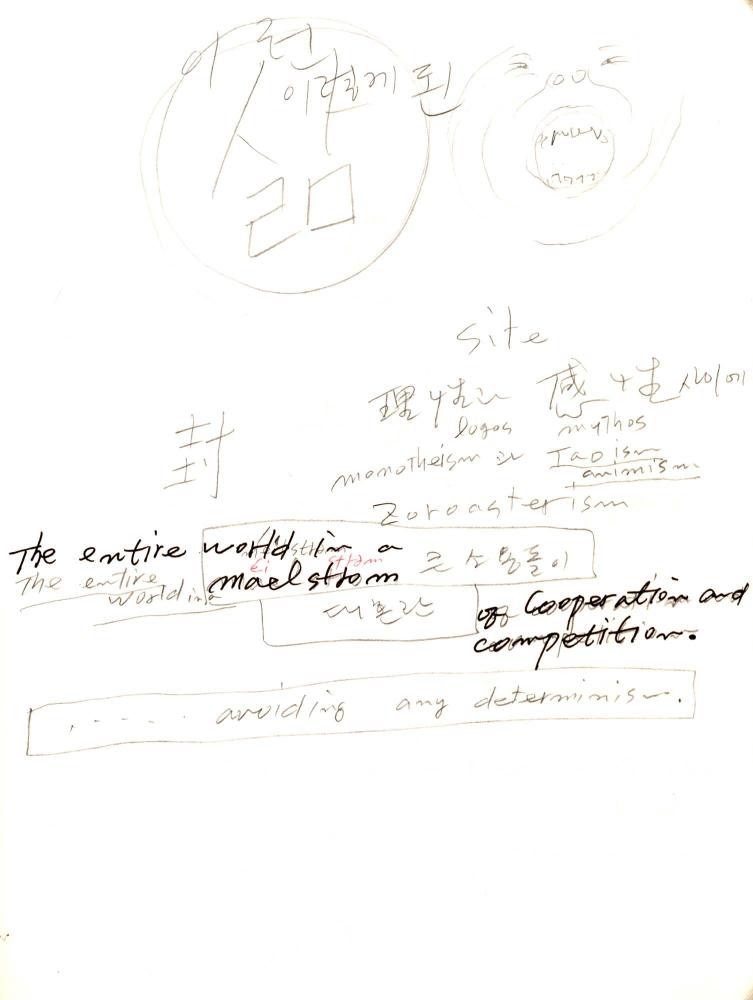 이런
이렇게 된
삶
site
理性과 感性 사이에
logos mythos
封
monotheism과 Taoism
animism
Zoroasterism
The entire world in a
maelstrom
큰 소용돌이
The entire
world in a
대혼란
of Cooperation and
competition.
..... avoiding any determinism.